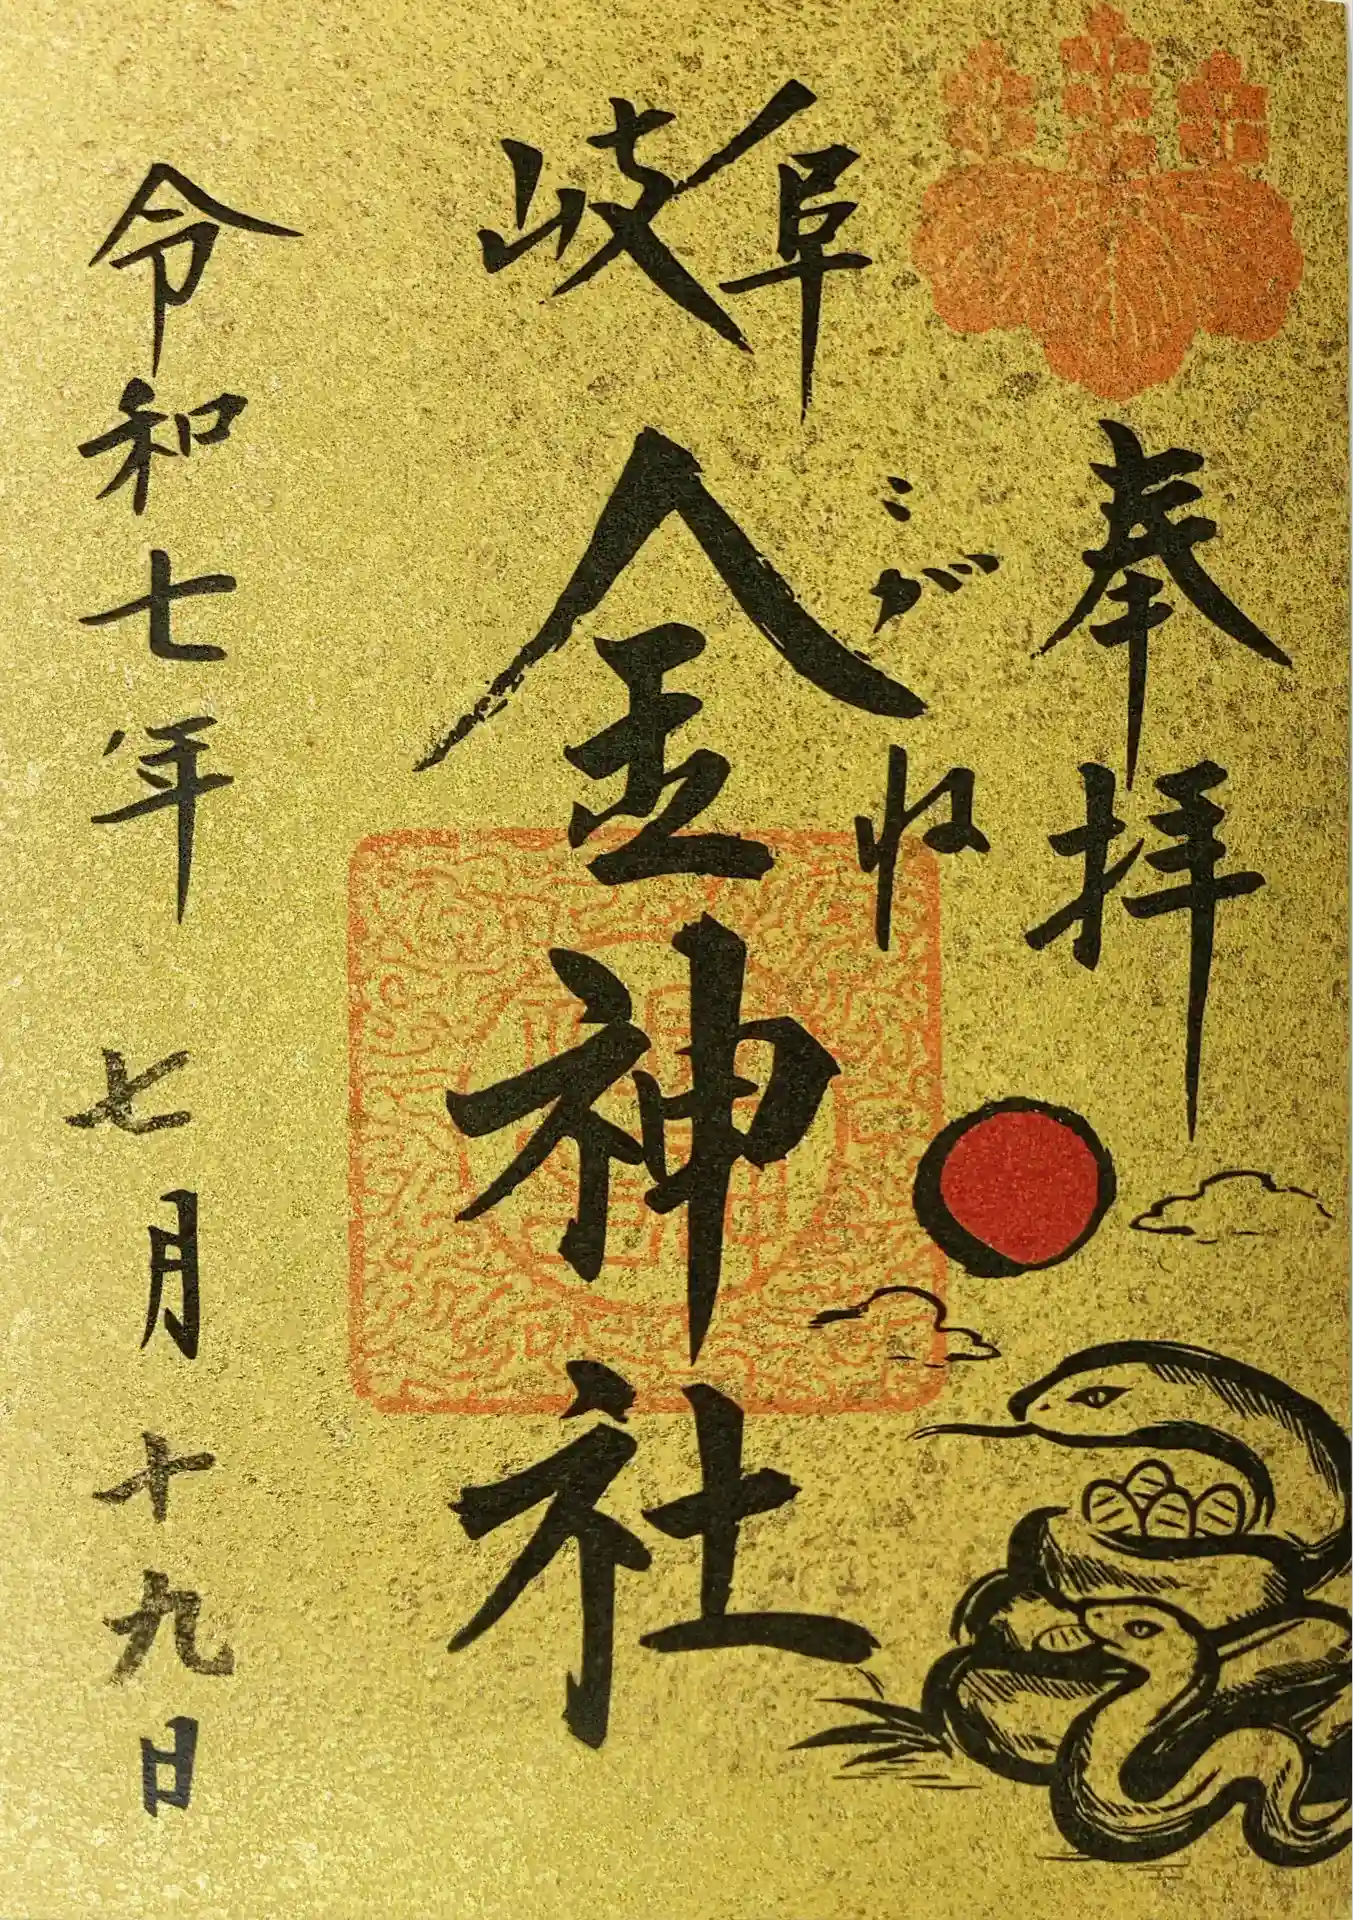 奉拝
岐阜
金神社
こがね
令和七年七月十九日